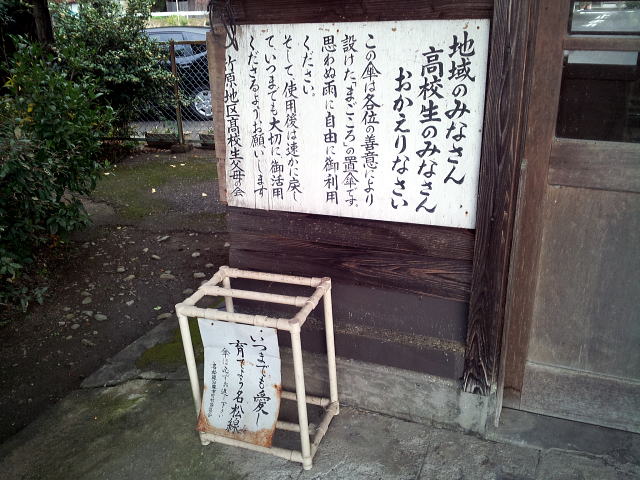 地域のみなさん
高校生のみなさん
おかえりなさい
この傘は各位の善意により
設けた「まごころ」の置傘です。
思わぬ雨に自由に御利用
ください。
そして、使用後は速かに戻し
ていつまでも大切に御活用
くださるようお願いします
竹原地区高校生父母の会
いつまでも愛し
育てよう名松線
傘は必ずお返し下さい